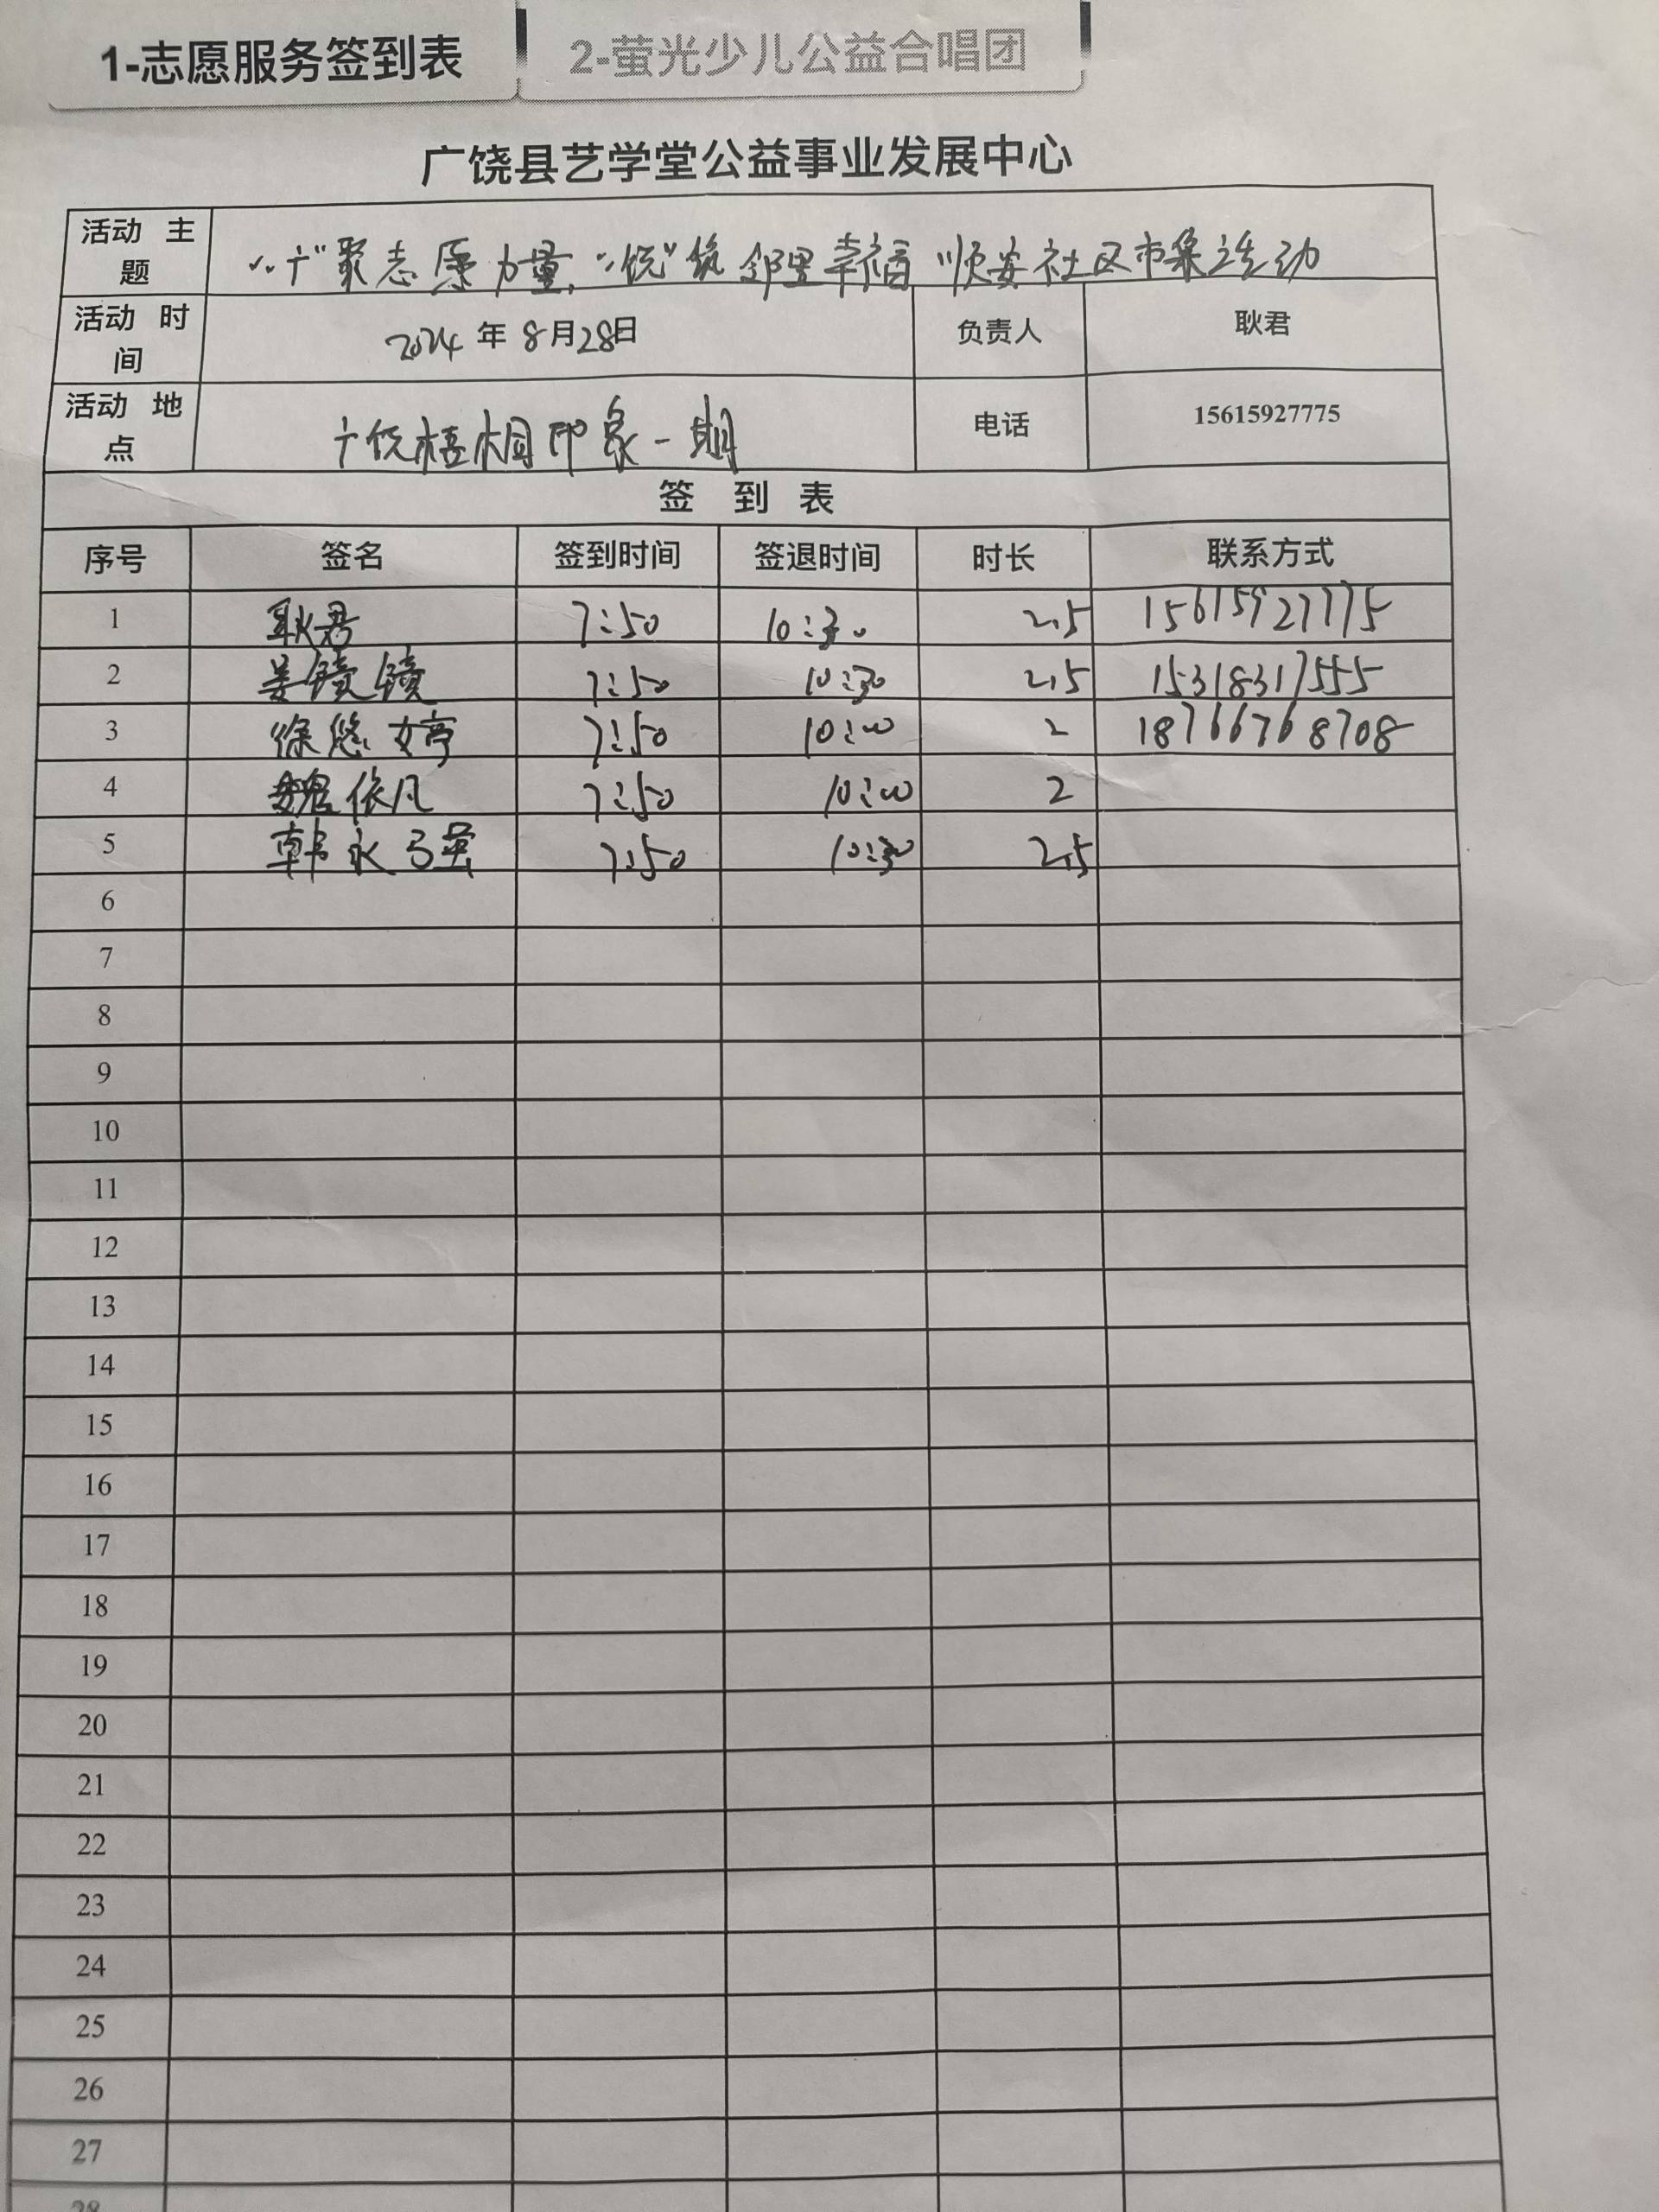 1-志愿服务签到表 2-萤光少儿公益合唱团
广饶县艺学堂公益事业发展中心
活动 主题 “广”聚志愿力量,“饶”筑邻里幸福 顺安社区市集活动
活动 时间 2024年8月28日 负责人 耿君
活动 地点 广饶梧桐印象一期 电话 15615927775
签 到 表
序号 签名 签到时间 签退时间 时长 联系方式
1 耿君 7:50 10:30 2.5 15615927775
2 姜镜镜 7:50 10:30 2.5 15318317555
3 徐悠婷 7:50 10:00 2 18766768708
4 魏依凡 7:50 10:00 2
5 韩永强 7:50 10:30 2.5
6
7
8
9
10
11
12
13
14
15
16
17
18
19
20
21
22
23
24
25
26
27
28